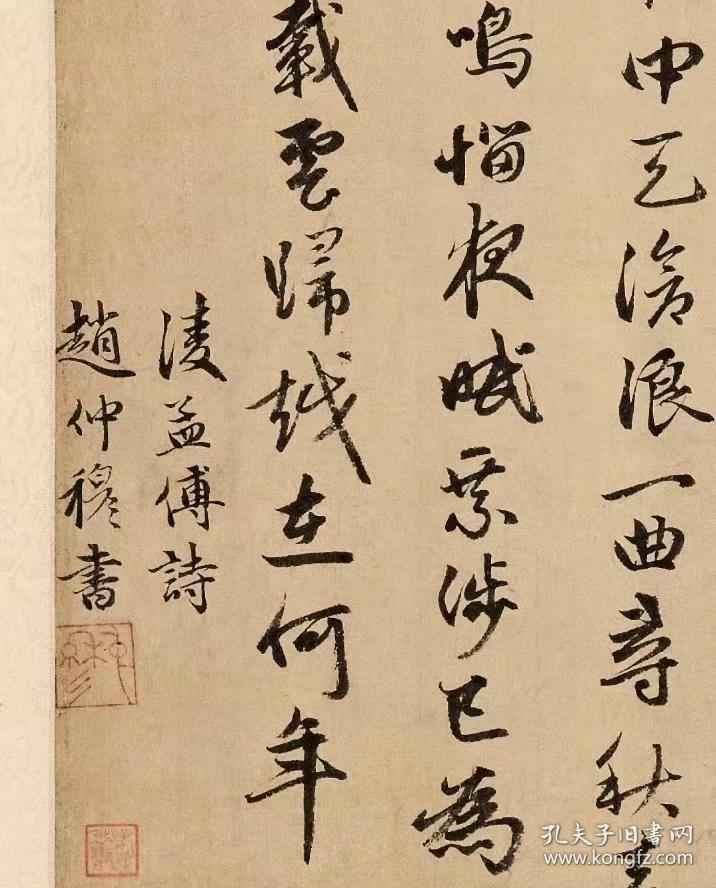 中天滄浪一曲尋秋
鳴惱夜眠涉已為
載雲歸越在何年
淩孟傅詩
趙仲穆書
孔夫子旧书网
www.kongfz.com